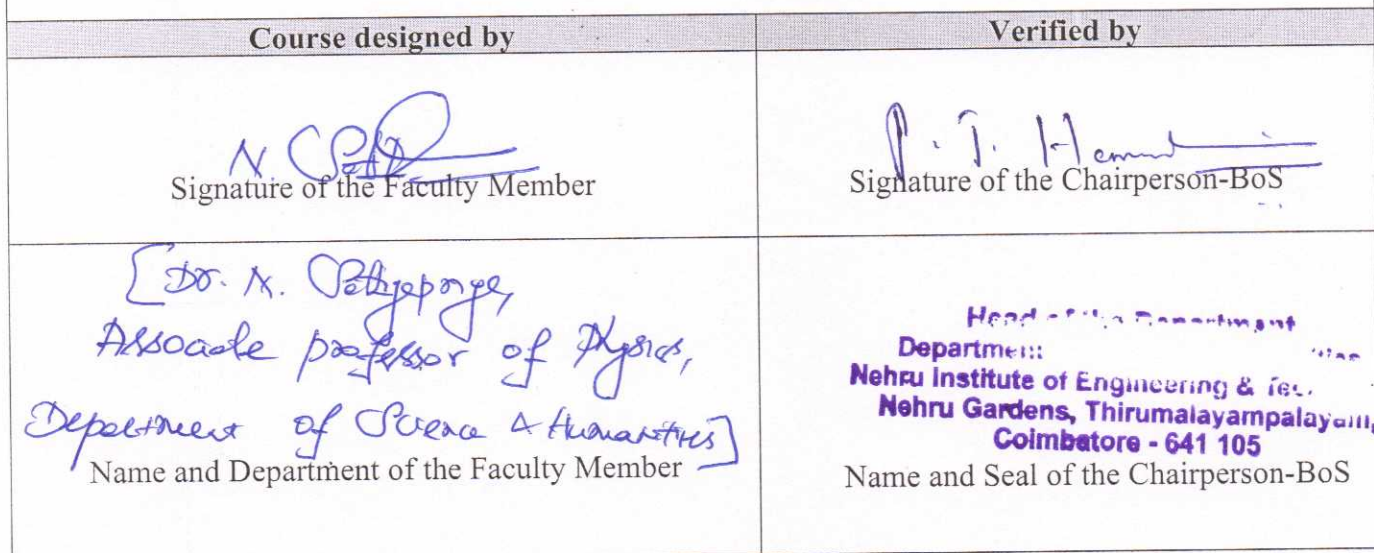 Course designed by
Verified by
N.
Signature of the Faculty Member
P. T.
Signature of the Chairperson-BoS
[Dr. N.
Associate professor of Physics,
Department of Science & Humanities]
Name and Department of the Faculty Member
Head of the Department
Department
Nehru Institute of Engineering &
Nehru Gardens, Thirumalayampalayam,
Coimbatore - 641 105
Name and Seal of the Chairperson-BoS